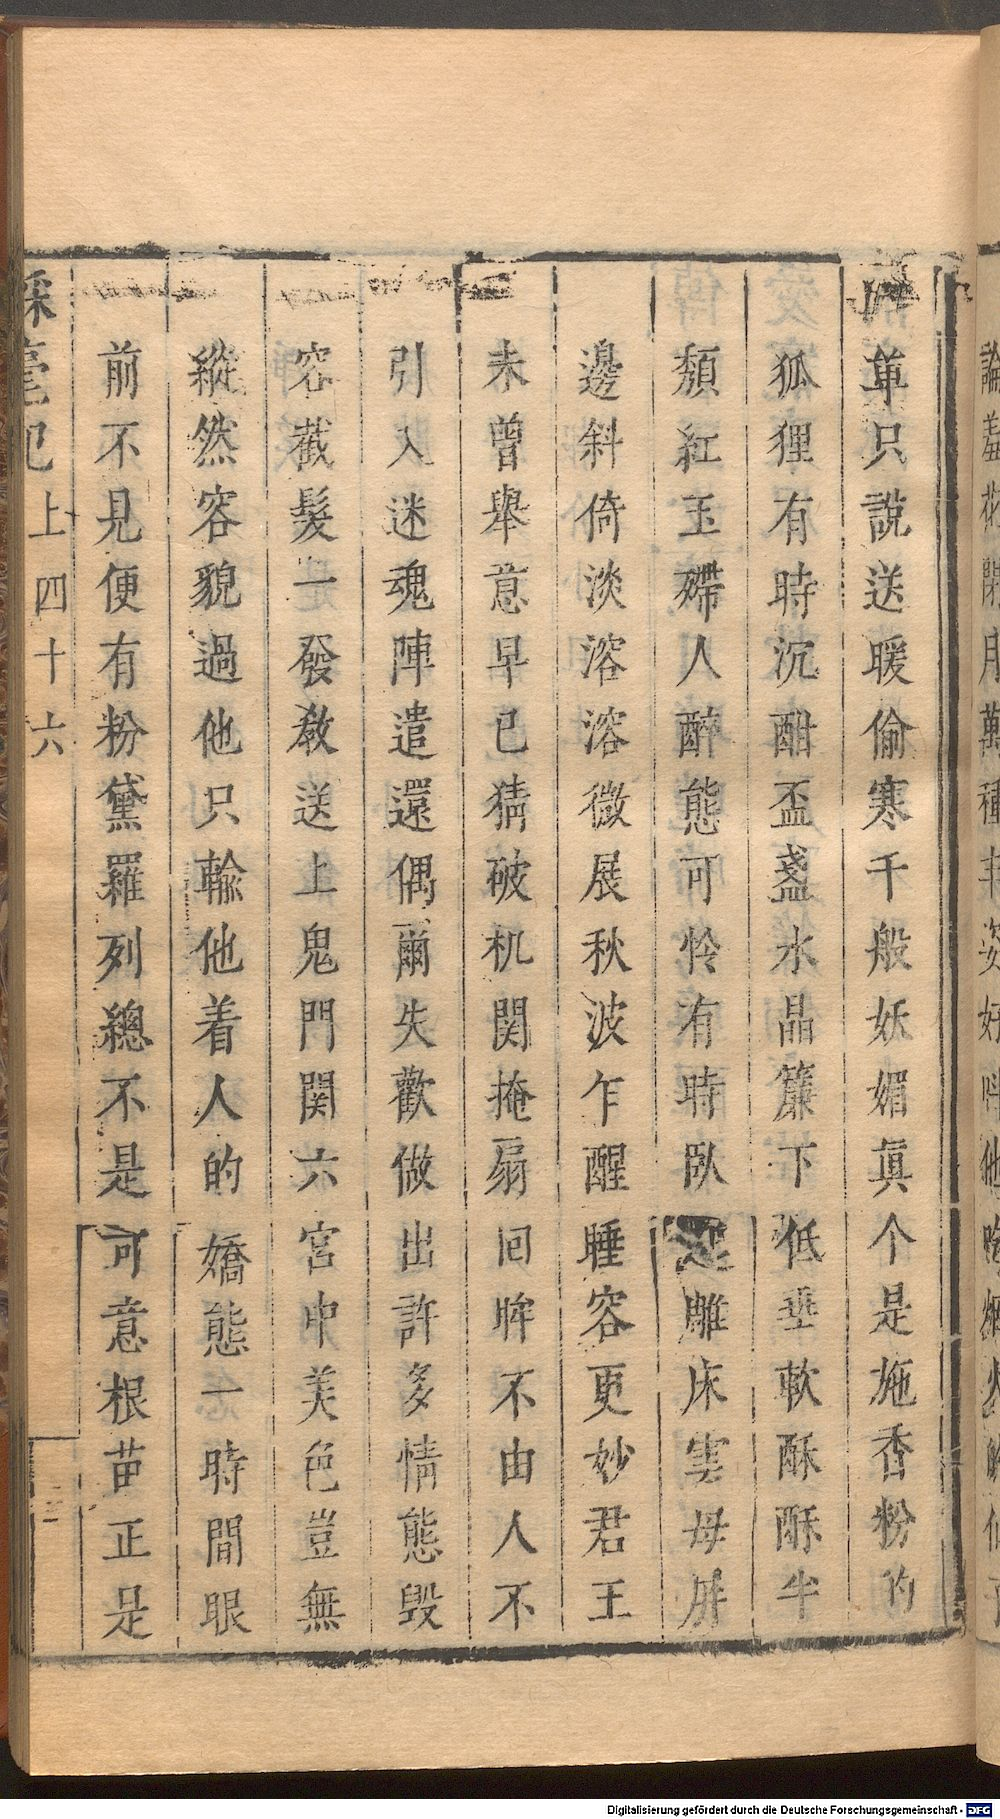 單只說送暖偷寒千般妖媚眞个是施香粉的
狐狸有時沉酣盃盞水晶簾下低垂軟酥酥半
頹紅玉殢人醉態可怜有時臥雕床雲母屏
邊斜倚淡溶溶微展秋波乍醒睡容更妙君王
未曾舉意早已猜破机関掩扇回眸不由人不
引入迷魂陣遣還偶爾失歡做出許多情態毀
容截髮一發教送上鬼門関六宮中美色豈無
縱然容貌過他只輸他着人的嬌態一時間眼
前不見便有粉黛羅列總不是可意根苗正是
綵毫記
上
四十六
Digitalisierung gefördert durch die Deutsche Forschungsgemeinschaft - DFG